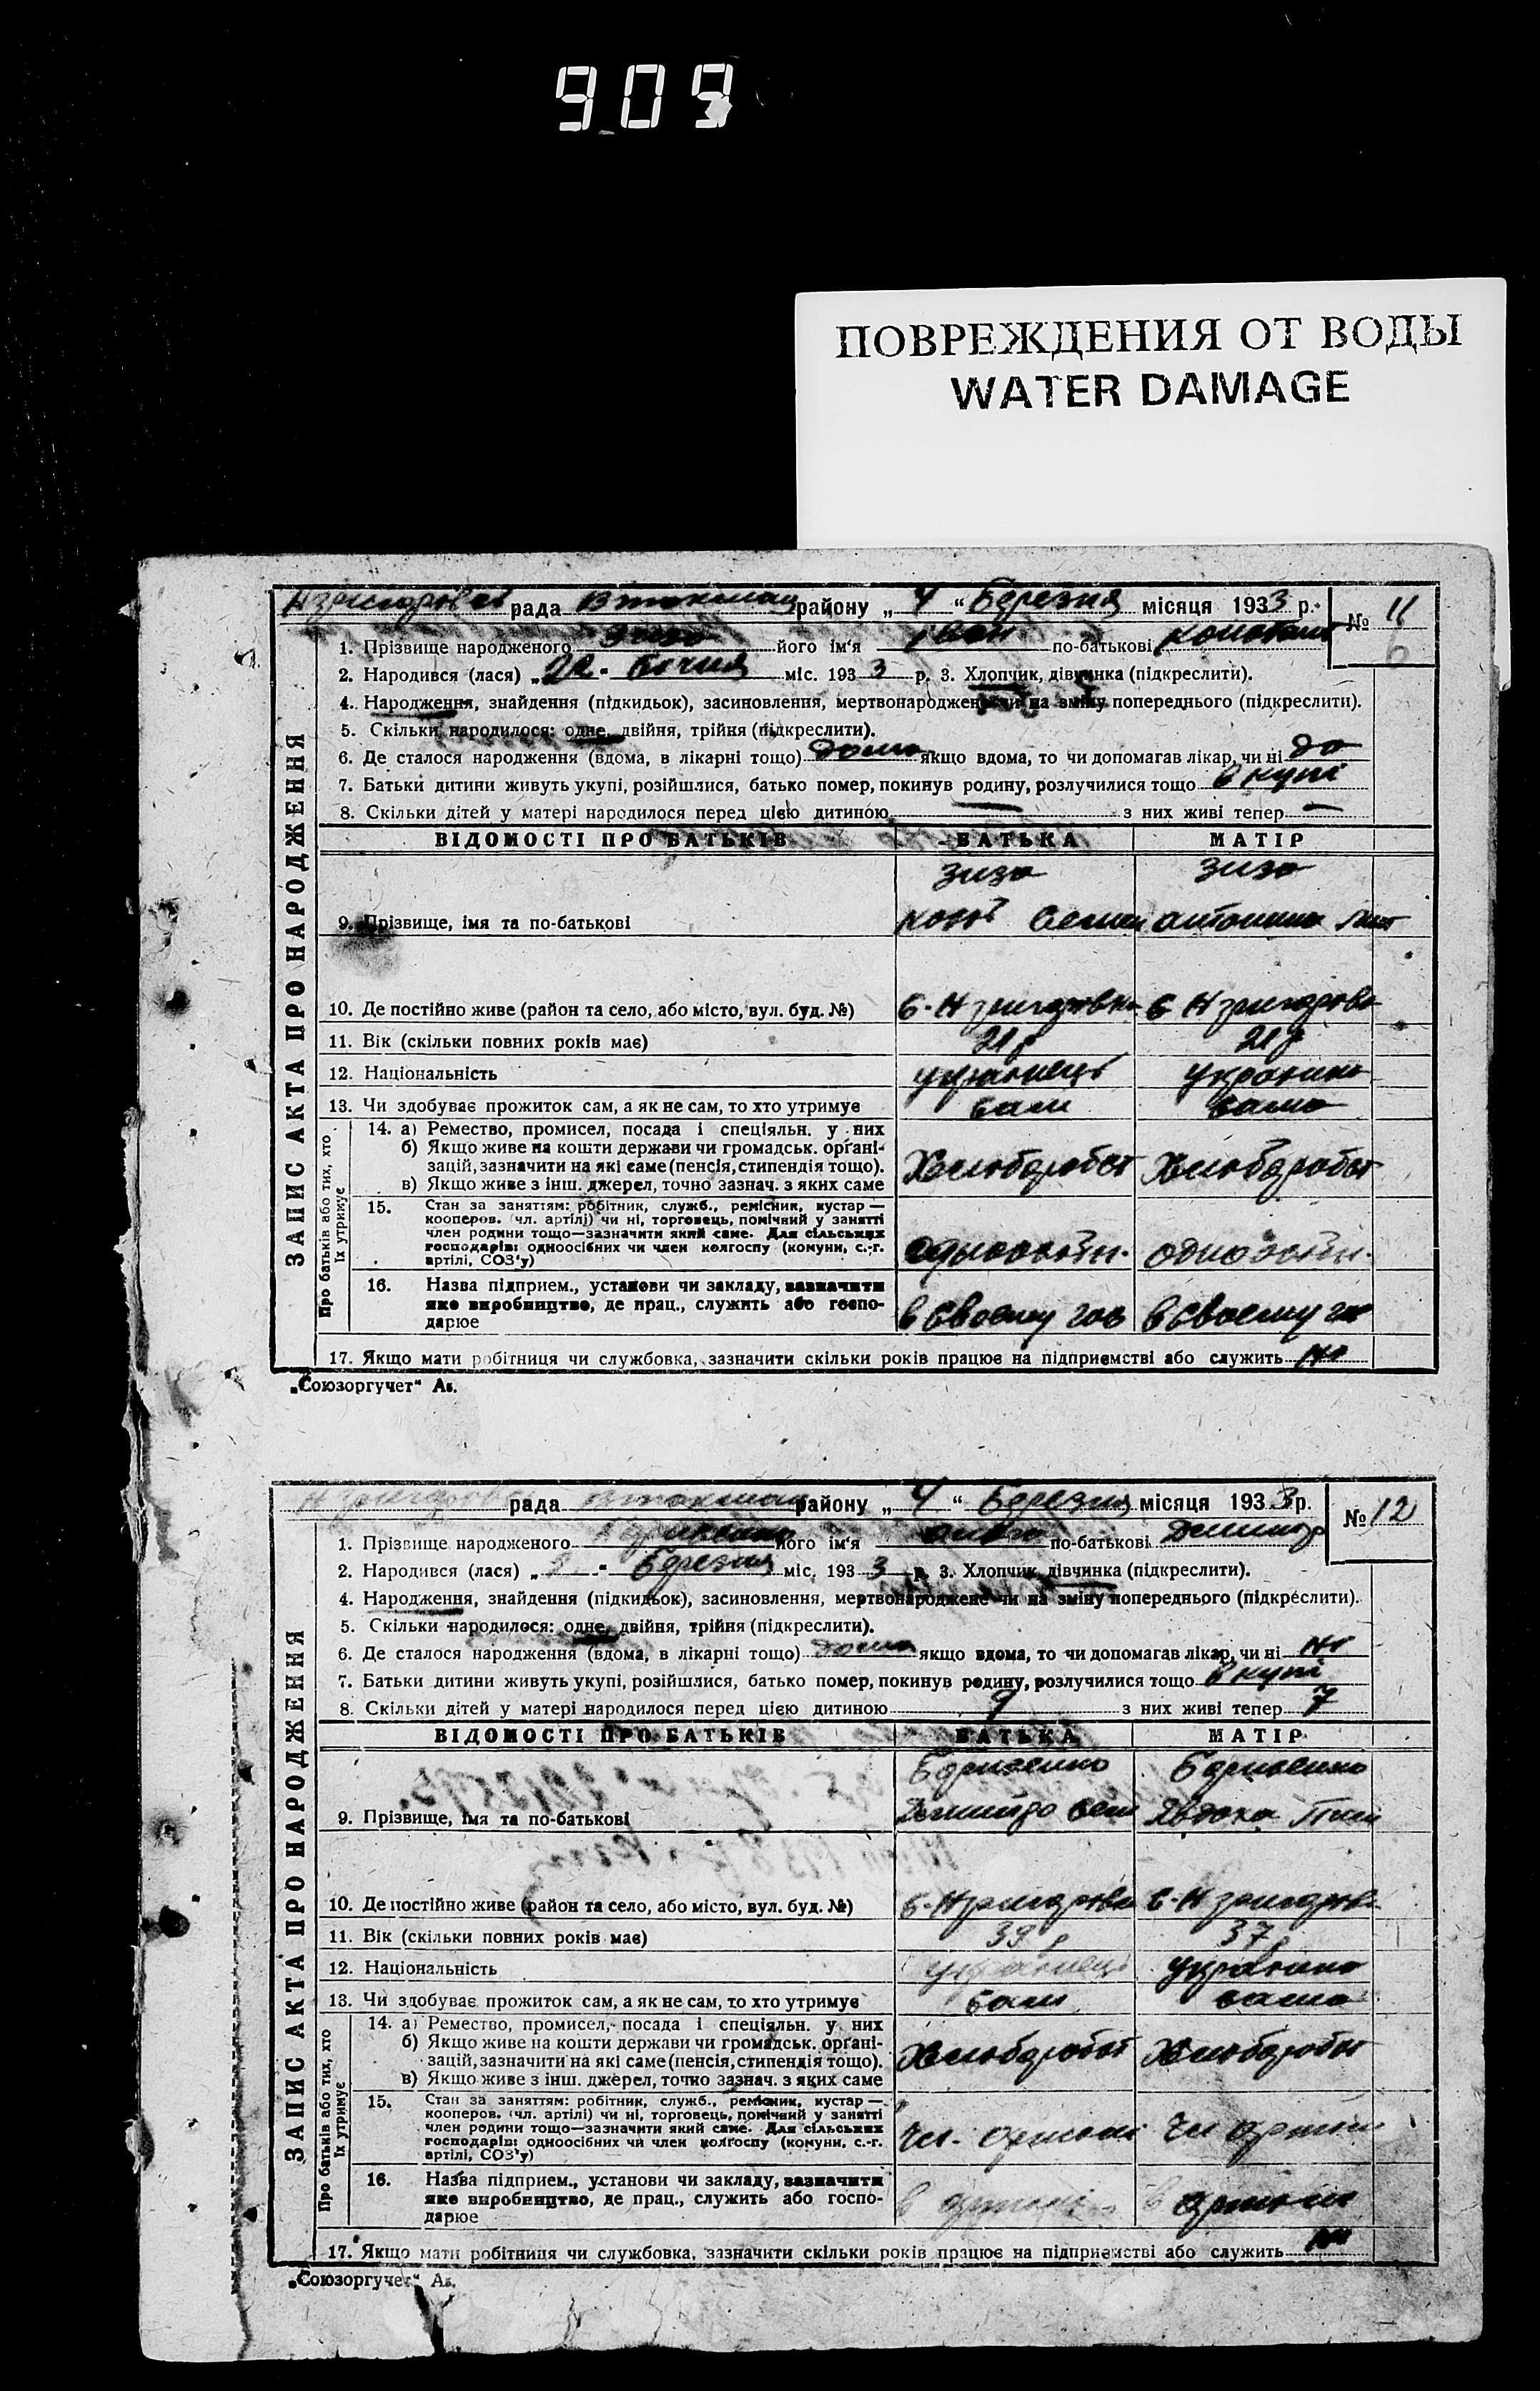 909
ПОВРЕЖДЕНИЯ ОТ ВОДЫ
WATER DAMAGE
рада району „ 4 “ Березня місяця 1933 р. № 11
6
1. Прізвище народженого Зизо його ім'я Іван по-батькові
2. Народився (лася) „ 22 - Січня міс. 193 3 р. 3. Хлопчик, дівчинка (підкреслити).
4. Народження, знайдення (підкидьок), засиновлення, мертвонароджене чи на зміну попереднього (підкреслити).
5. Скільки народилося: одне, двійня, трійня (підкреслити).
6. Де сталося народження (вдома, в лікарні тощо) дома якщо вдома, то чи допомагав лікар, чи ні до
7. Батьки дитини живуть укупі, розійшлися, батько помер, покинув родину, розлучилися тощо в купі
8. Скільки дітей у матері народилося перед цією дитиною — з них живі тепер —
ЗАПИС АКТА ПРО НАРОДЖЕННЯ
ВІДОМОСТІ ПРО БАТЬКІВ БАТЬКА МАТІР
Зизо Зизо
9. Прізвище, імя та по-батькові
10. Де постійно живе (район та село, або місто, вул. буд. №)
11. Вік (скільки повних років має) 21 р 21 р
12. Національність українець українка
13. Чи здобуває прожиток сам, а як не сам, то хто утримує сам сама
Про батьків або тих, хто їх утримує
14. а) Ремество, промисел, посада і спеціяльн. у них
б) Якщо живе на кошти держави чи громадськ. органі-
зацій, зазначити на які саме (пенсія, стипендія тощо). Хлюбороб Хлюбороб
в) Якщо живе з інш. джерел, точно зазнач. з яких саме
15. Стан за заняттям: робітник, служб., ремісник, кустар —
кооперов. (чл. артілі) чи ні, торговець, помічний у занятті
член родини тощо—зазначити який саме. Для сільських
господарів: одноосібних чи член колгоспу (комуни, с.-г.
артілі, СОЗ'у)
16. Назва підприєм., установи чи закладу, зазначити
яке виробництво, де прац., служить або госпо- в своєму гос в своєму гос
дарює
17. Якщо мати робітниця чи службовка, зазначити скільки років працює на підприємстві або служить
„Союзоргучет“ Аз.
рада району „ 4 “ Березня місяця 193 3 р. № 12
1. Прізвище народженого його ім'я по-батькові
2. Народився (лася) „ “ Березня міс. 193 3 р. 3. Хлопчик, дівчинка (підкреслити).
4. Народження, знайдення (підкидьок), засиновлення, мертвонароджене чи на зміну попереднього (підкреслити).
5. Скільки народилося: одне, двійня, трійня (підкреслити).
6. Де сталося народження (вдома, в лікарні тощо) дома якщо вдома, то чи допомагав лікар, чи ні
7. Батьки дитини живуть укупі, розійшлися, батько помер, покинув родину, розлучилися тощо в купі
8. Скільки дітей у матері народилося перед цією дитиною 9 з них живі тепер 7
ЗАПИС АКТА ПРО НАРОДЖЕННЯ
ВІДОМОСТІ ПРО БАТЬКІВ БАТЬКА МАТІР
Борисенко Борисенко
9. Прізвище, імя та по-батькові
10. Де постійно живе (район та село, або місто, вул. буд. №)
11. Вік (скільки повних років має) 39 р 37 р
12. Національність українець українка
13. Чи здобуває прожиток сам, а як не сам, то хто утримує сам сама
Про батьків або тих, хто їх утримує
14. а) Ремество, промисел, посада і спеціяльн. у них
б) Якщо живе на кошти держави чи громадськ. органі-
зацій, зазначити на які саме (пенсія, стипендія тощо). Хлюбороб Хлюбороб
в) Якщо живе з інш. джерел, точно зазнач. з яких саме
15. Стан за заняттям: робітник, служб., ремісник, кустар —
кооперов. (чл. артілі) чи ні, торговець, помічний у занятті
член родини тощо—зазначити який саме. Для сільських
господарів: одноосібних чи член колгоспу (комуни, с.-г.
артілі, СОЗ'у)
16. Назва підприєм., установи чи закладу, зазначити
яке виробництво, де прац., служить або госпо-
дарює
17. Якщо мати робітниця чи службовка, зазначити скільки років працює на підприємстві або служить
„Союзоргучет“ Аз.